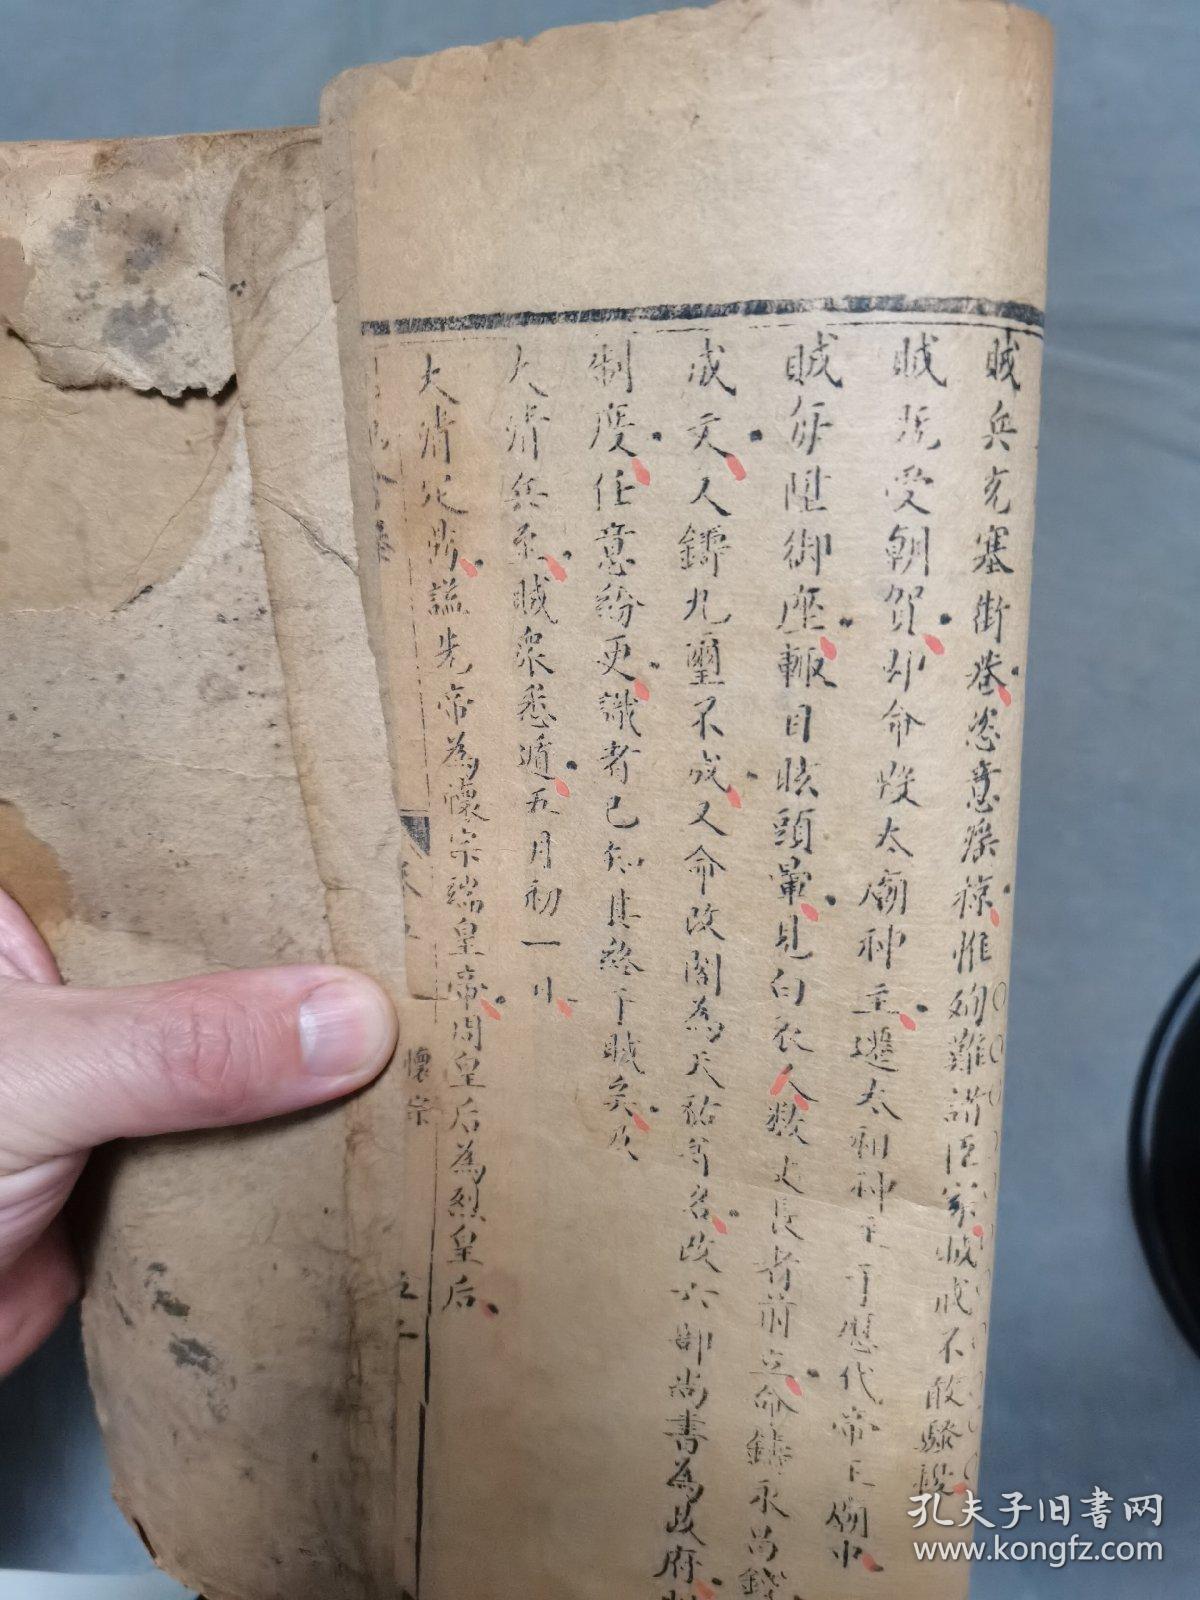 賊兵充塞街巷恣意淫掠惟殉難諸臣家賊戒不敢騷擾
賊既受朝賀即命毀太廟神主遷太祖神主于歷代帝王廟中
賊每陞御座輒目眩頭暈見白衣人數丈長者前立命鑄永昌錢
成文又鑄九璽不成又命改閣為天祐等名改六部尚書為政府
制度任意紛更識者已知其終于賊矣及
大清兵至賊衆悉遁五月初一日
大清定鼎諡先帝為懷宗端皇帝周皇后為烈皇后
懷宗
孔夫子旧书网
www.kongfz.com